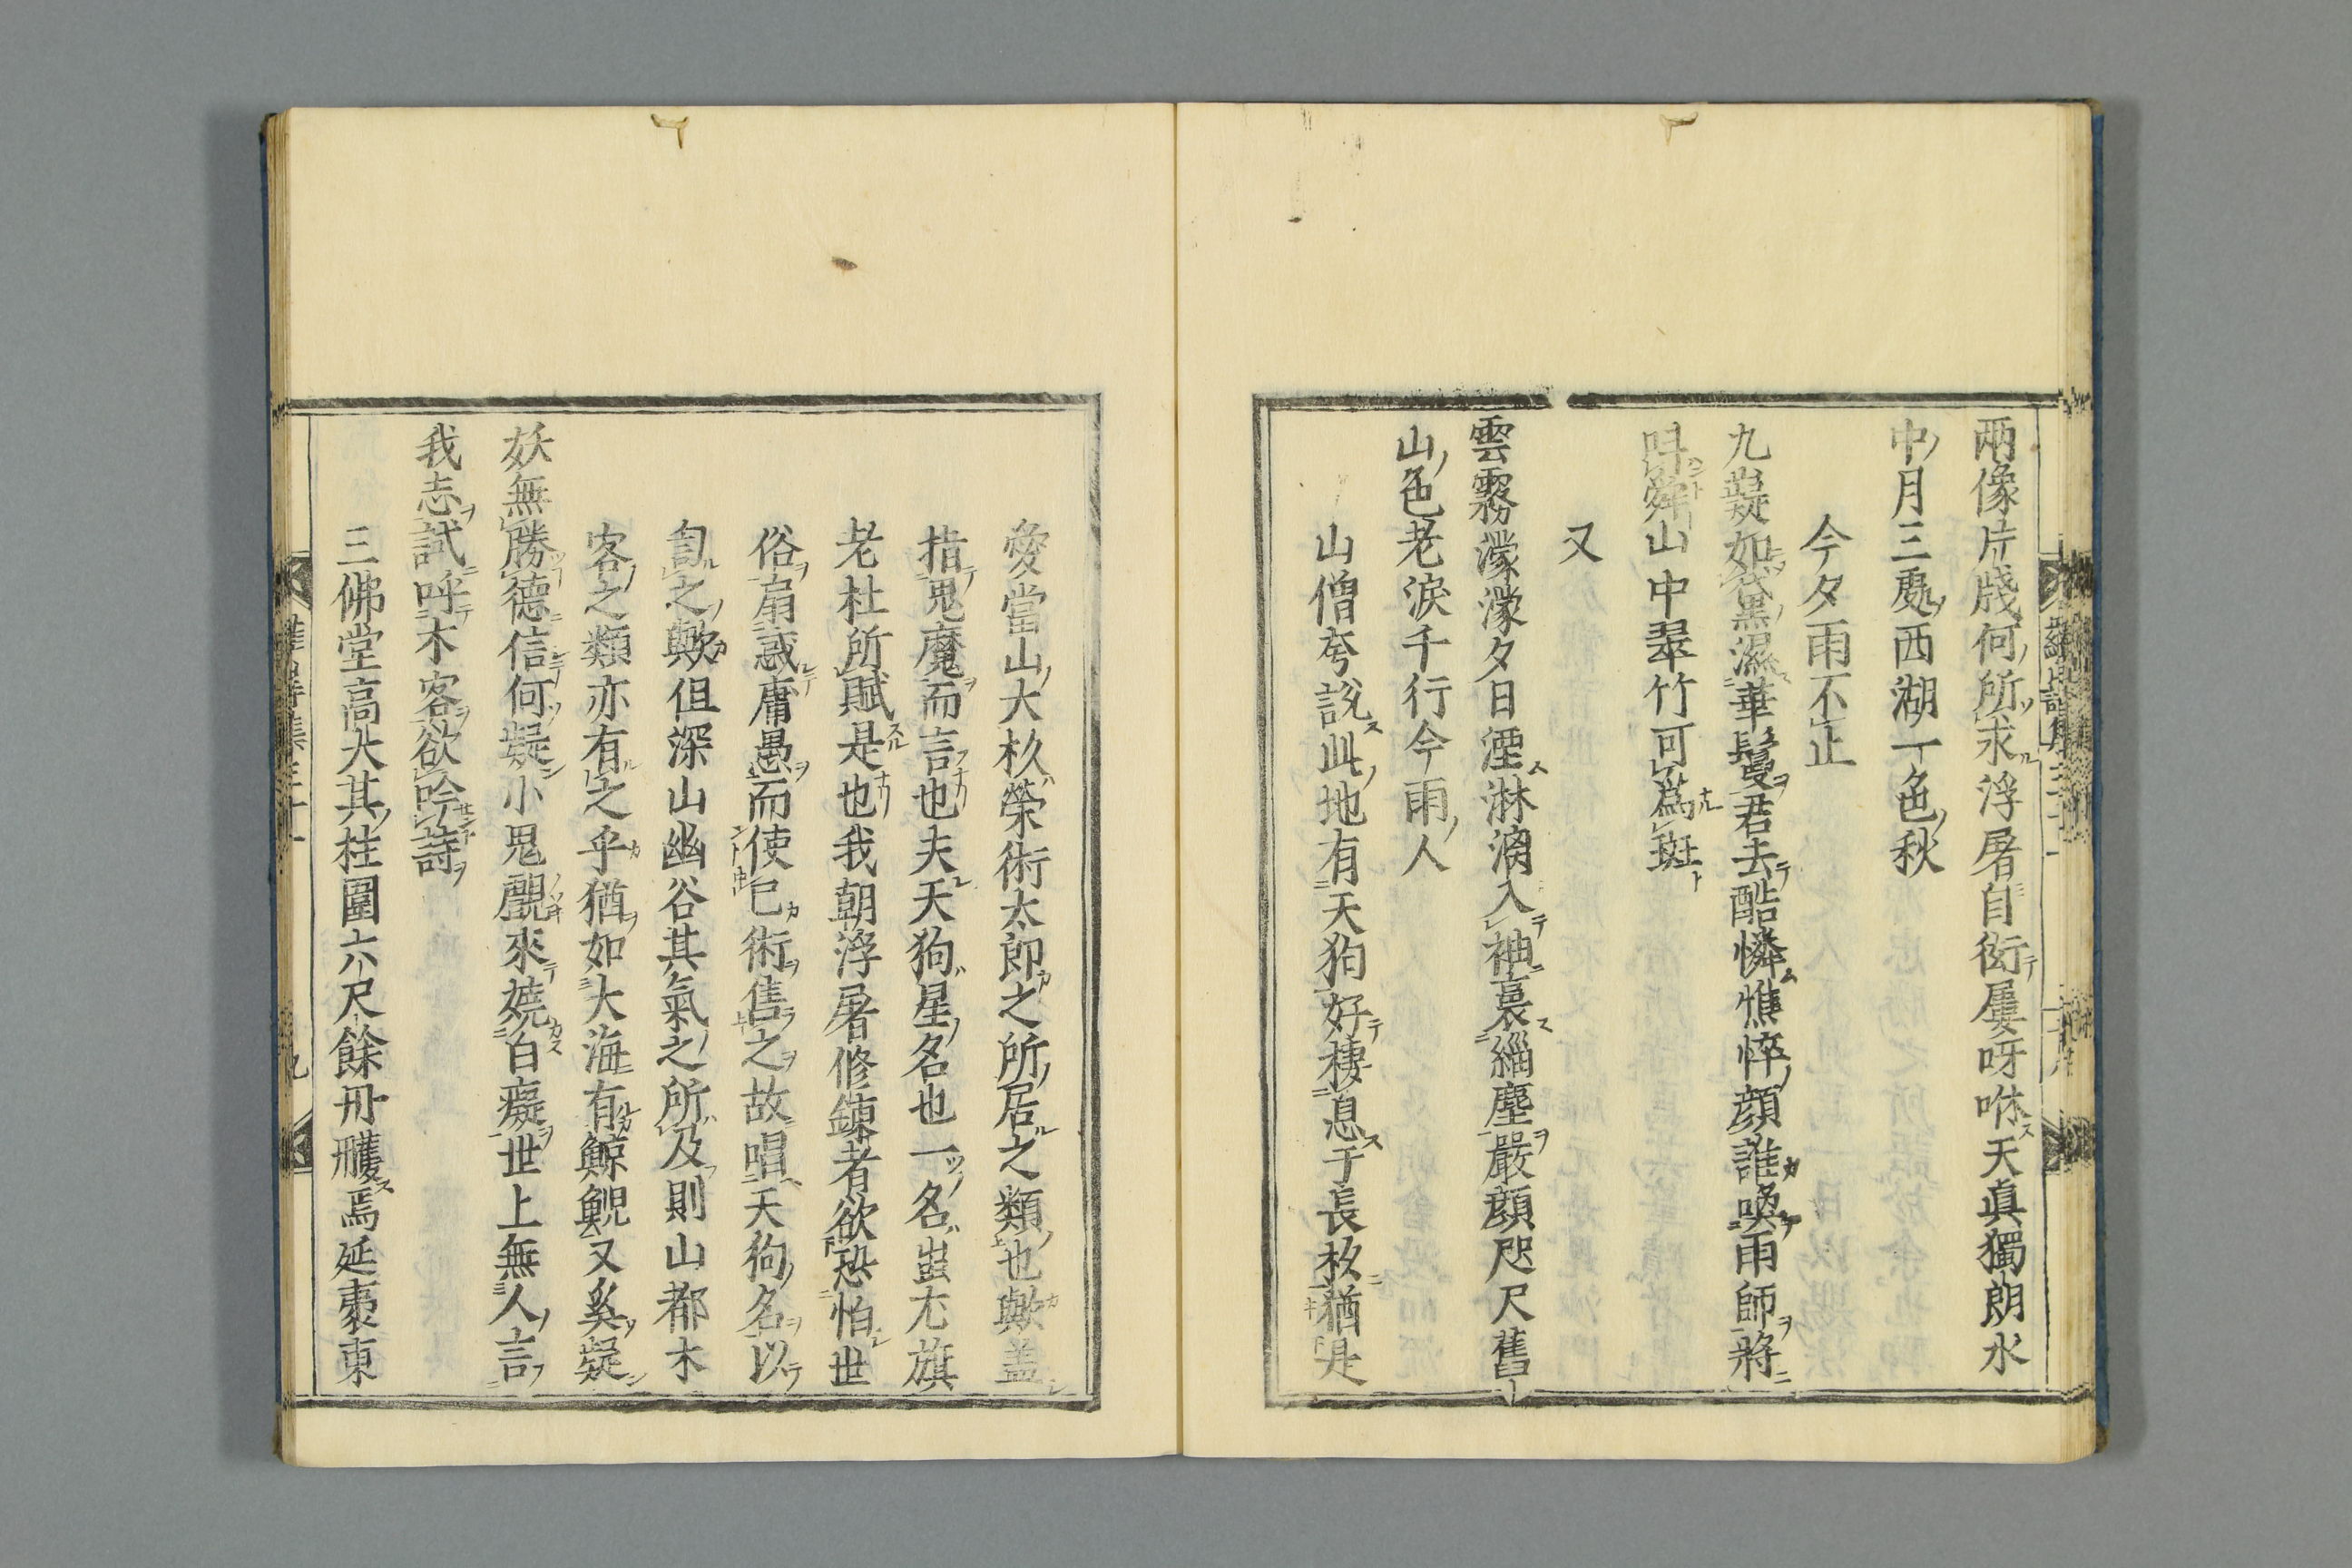 兩像片牋何所求浮屠自衒屢呀咻天眞獨朗水
中月三處西湖一色秋
今夕雨不止
九嶷如袋黒濕華鬘君去酷憐憔悴顔誰喚雨師將
叫舜山中翠竹可爲斑
又
雲霧濛濛夕日湮淋漓入袖裏緇塵嚴顔咫尺舊
山色老淚千行今雨人
山僧夸說此地有天狗好棲息于長杦猶是
愛當山大杦榮術太郎之所居之類也歟盖
指鬼魔而言也夫天狗星名也一名蚩尤旗
老杜所賦是也我朝浮屠修鍊者欲恐怕世
俗扇誡庸愚而使已術售之故唱天狗名以
訇之歟但深山幽谷其氣之所及則山都木
客之類亦有之乎猶如大海有鯨鯢又奚疑
妖無勝德信何疑小鬼覷來嬈白癡世上無人言
我志試呼木客欲吟詩
三佛堂高大其柱圍六尺餘丹雘焉延袤東